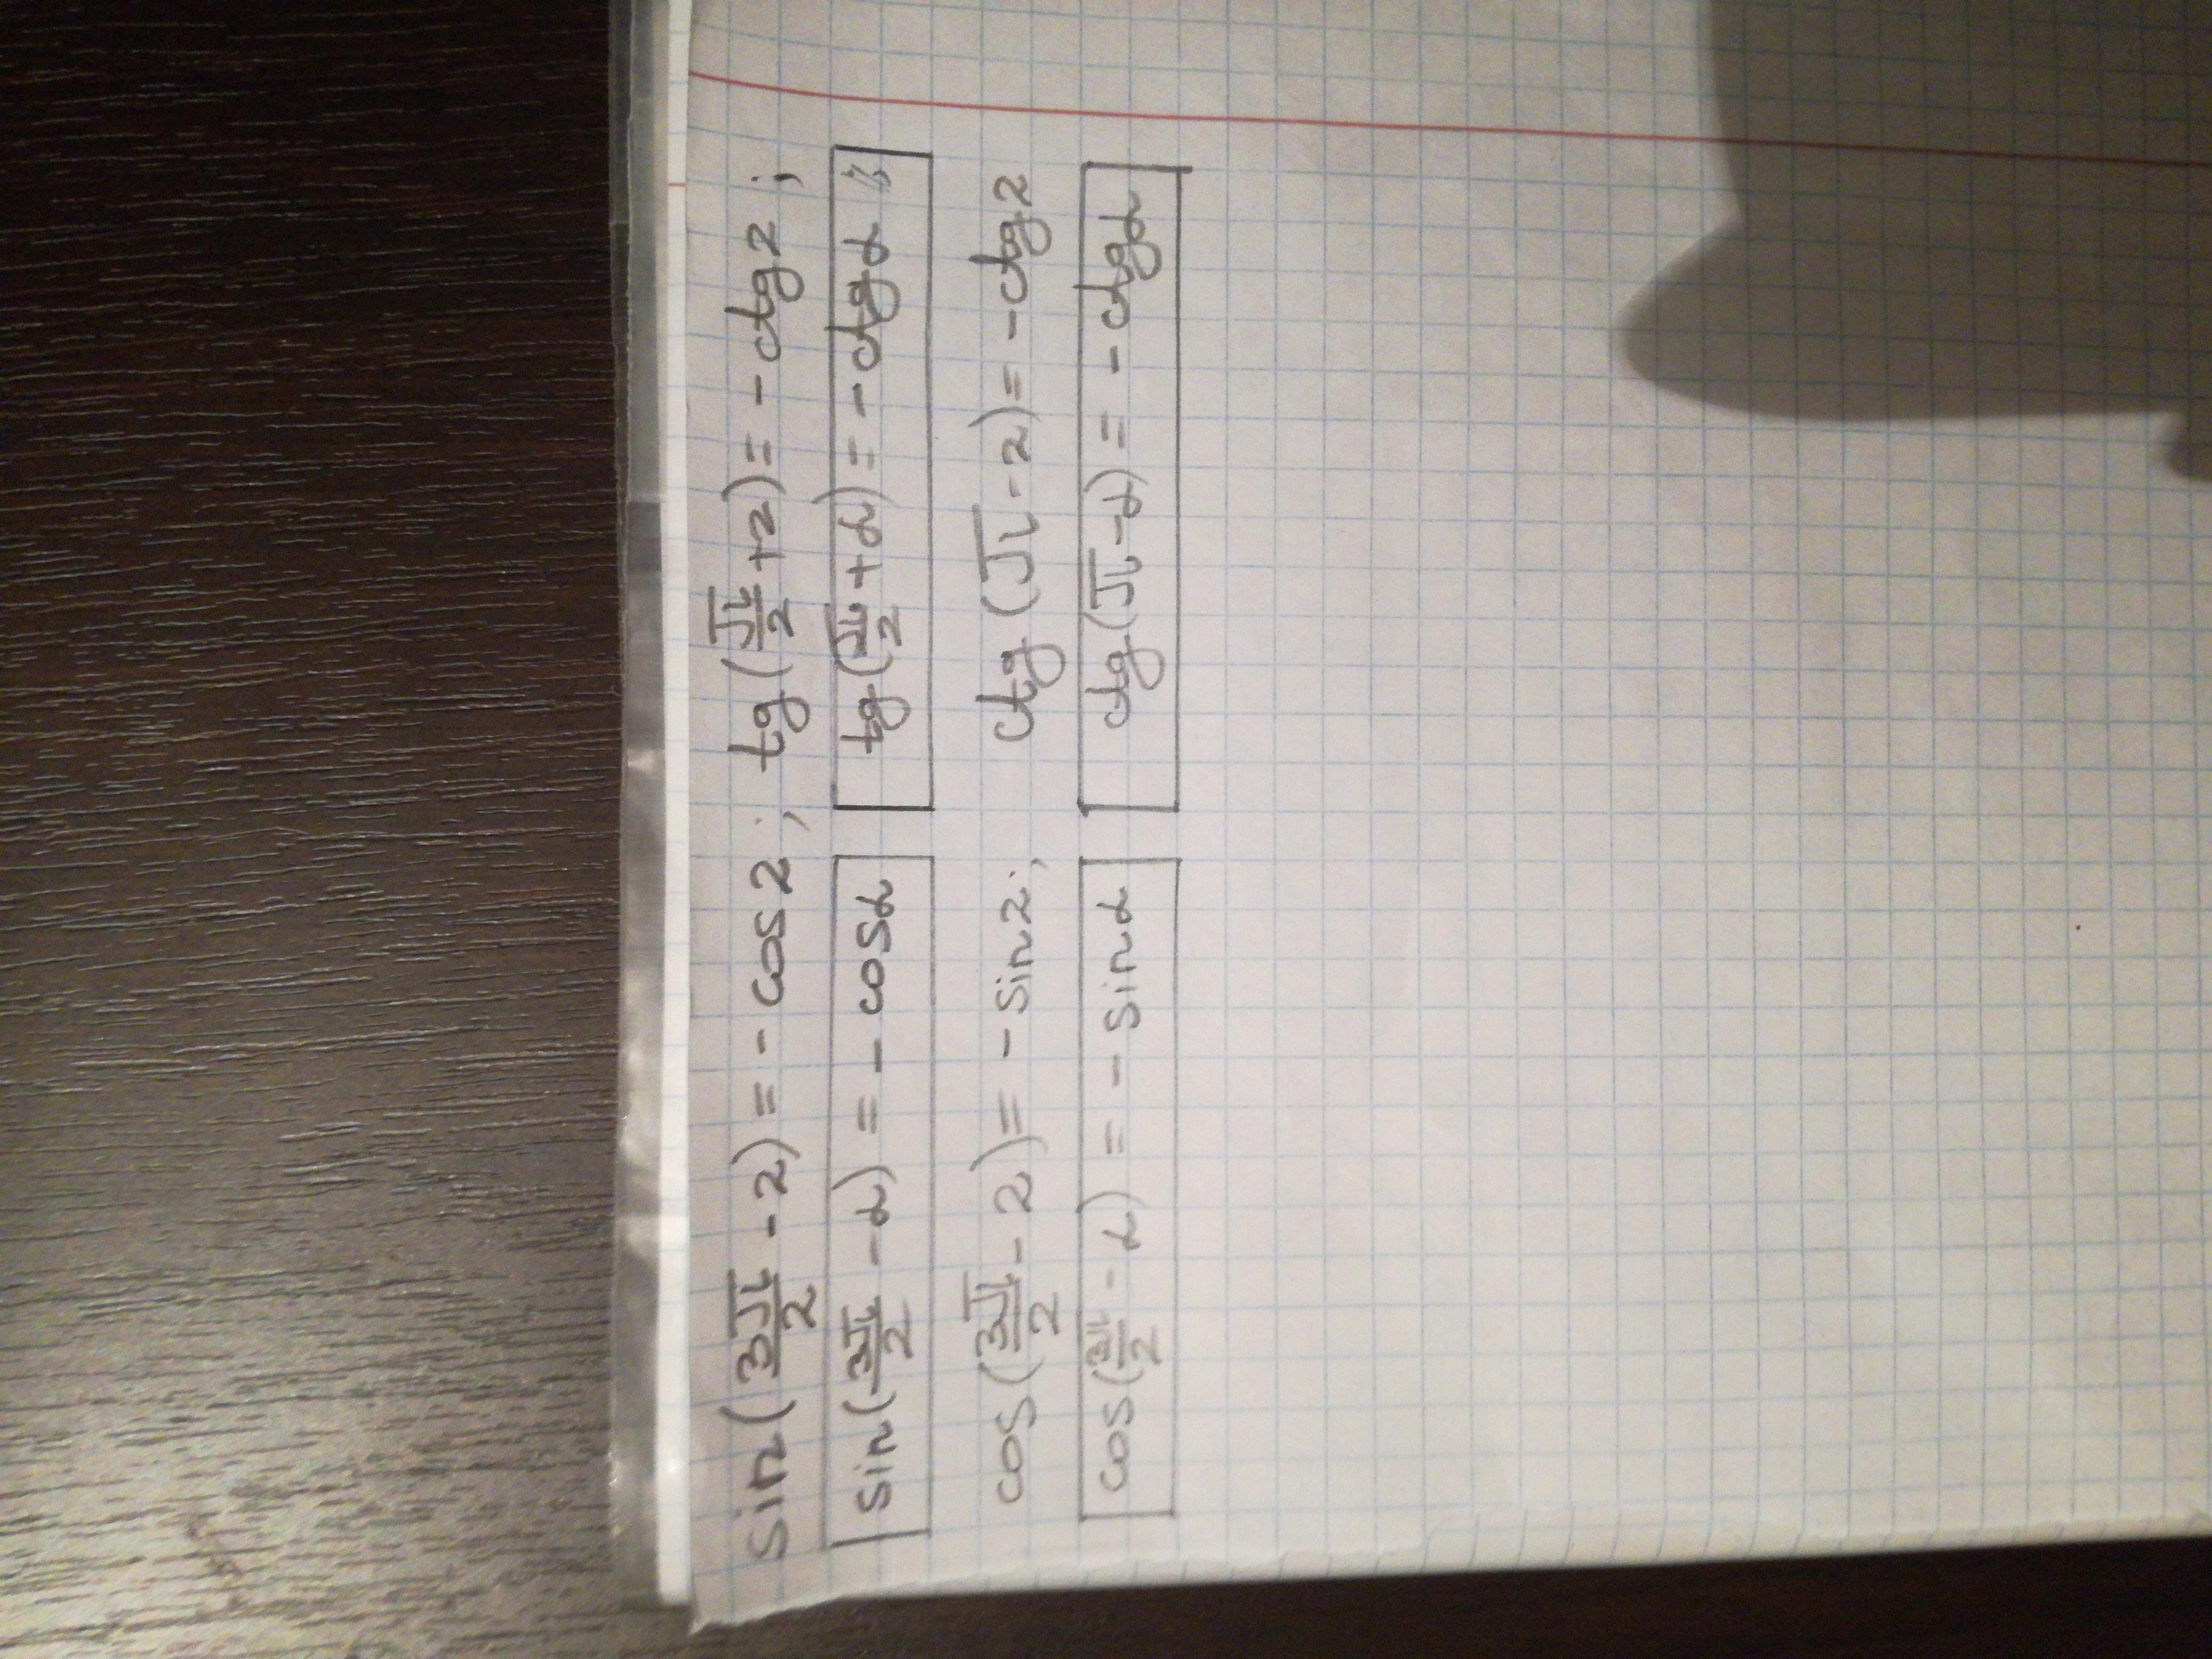 sin(3π/2 - 2) = - cos2; tg(π/2 + 2) = - ctg2;
sin(3π/2 - α) = - cosα tg(π/2 + α) = - ctgα
cos(3π/2 - 2) = - sin2; ctg(π - 2) = - ctg2
cos(3π/2 - α) = - sinα ctg(π - α) = - ctgα